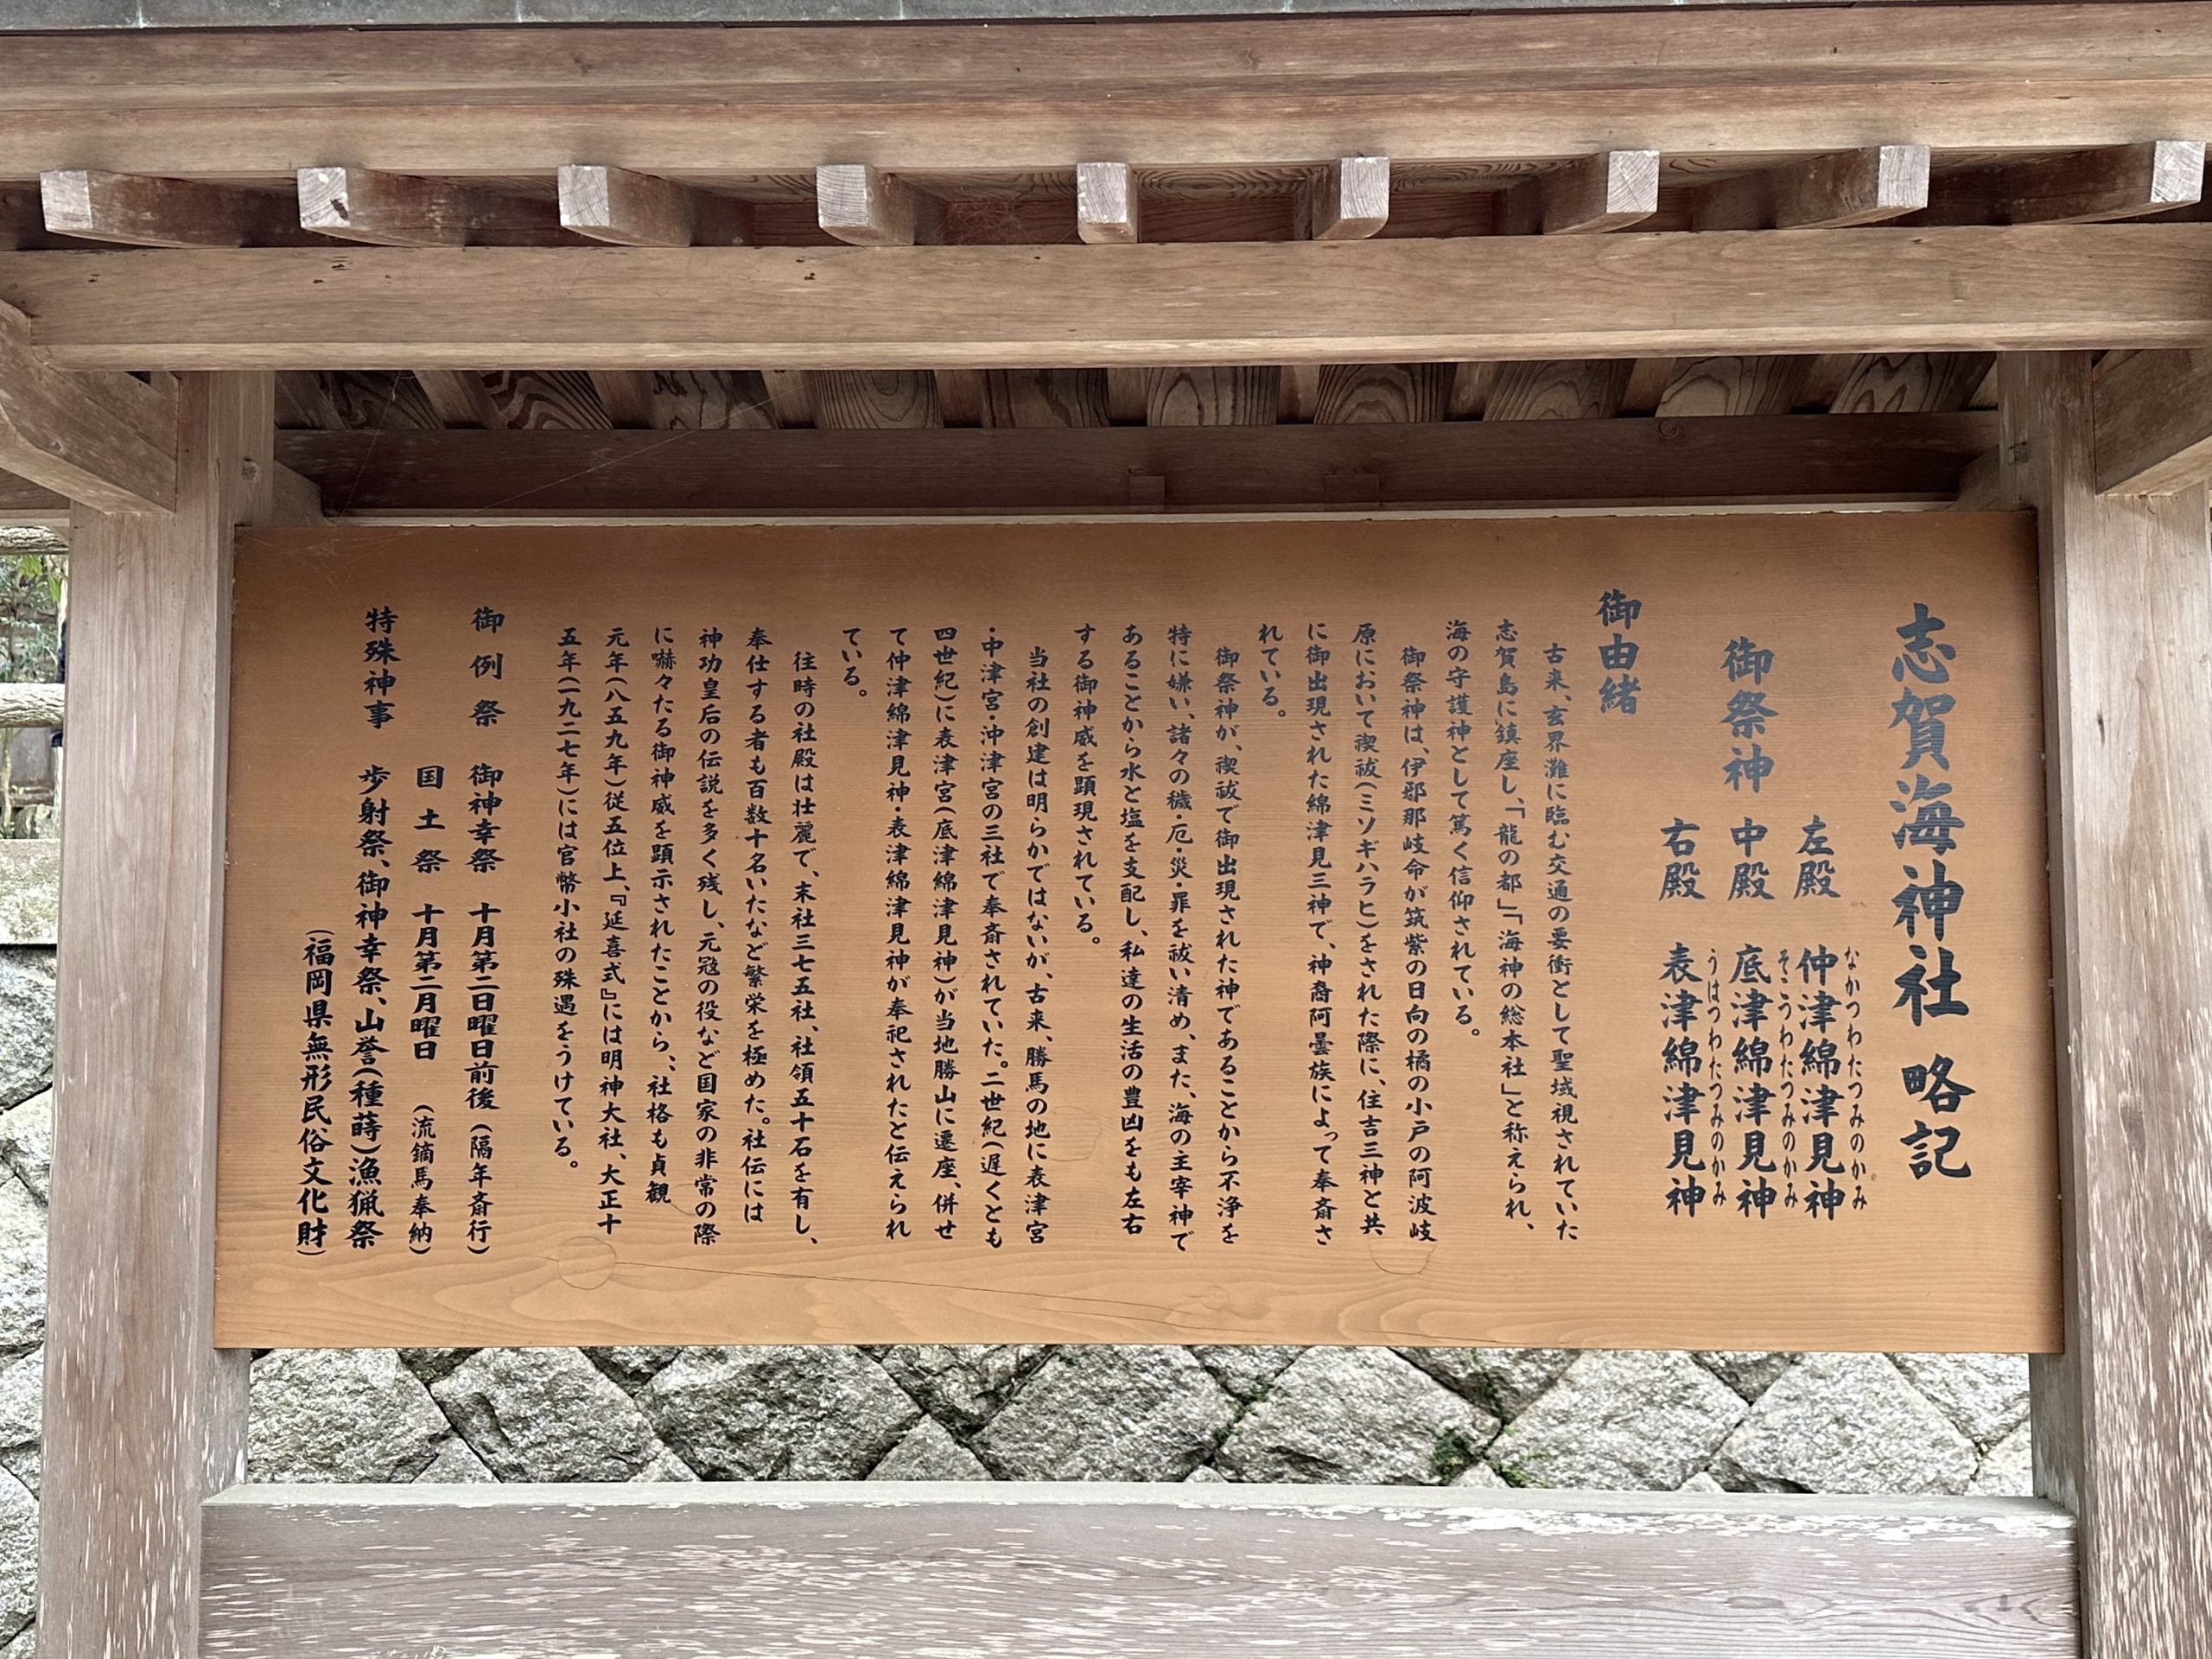 志賀海神社 略記
御祭神
左殿 仲津綿津見神
なかつわたつみのかみ
中殿 底津綿津見神
そこつわたつみのかみ
右殿 表津綿津見神
うはつわたつみのかみ
御由緒
古来、玄界灘に臨む交通の要衝として聖域視されていた
志賀島に鎮座し、「龍の都」「海神の総本社」と称えられ、
海の守護神として篤く信仰されている。
御祭神は、伊邪那岐命が筑紫の日向の橘の小戸の阿波岐
原において禊祓(ミソギハラヒ)をされた際に、住吉三神と共
に御出現された綿津見三神で、神裔阿曇族によって奉斎さ
れている。
御祭神が、禊祓で御出現された神であることから不浄を
特に嫌い、諸々の穢・厄・災・罪を祓い清め、また、海の主宰神で
あることから水と塩を支配し、私達の生活の豊凶をも左右
する御神威を顕現されている。
当社の創建は明らかではないが、古来、勝馬の地に表津宮
・中津宮・沖津宮の三社で奉斎されていた。二世紀(遅くとも
四世紀)に表津宮(底津綿津見神)が当地勝山に遷座、併せ
て仲津綿津見神・表津綿津見神が奉祀されたと伝えられ
ている。
往時の社殿は壮麗で、末社三七五社、社領五十石を有し、
奉仕する者も百数十名いたなど繁栄を極めた。社伝には
神功皇后の伝説を多く残し、元寇の役など国家の非常の際
に嚇々たる御神威を顕示されたことから、社格も貞観
元年(八五九年)従五位上、『延喜式』には明神大社、大正十
五年(一九二七年)には官幣小社の殊遇をうけている。
御例祭 御神幸祭 十月第二日曜日前後(隔年斎行)
国土祭 十月第二月曜日 (流鏑馬奉納)
特殊神事 歩射祭、御神幸祭、山誉(種蒔)漁猟祭
(福岡県無形民俗文化財)